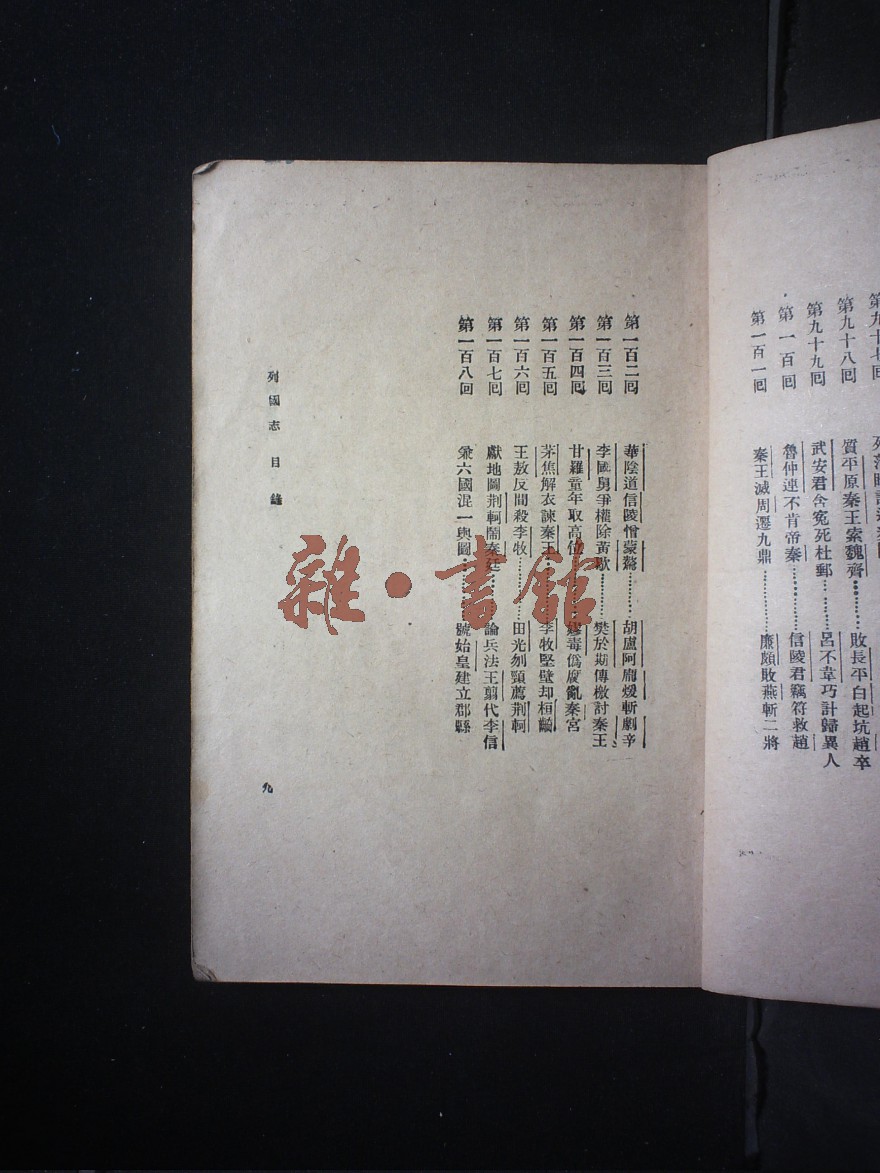 第九十八囘 質平原秦王索魏齊………敗長平白起坑趙卒
第九十九囘 武安君含冤死杜郵………呂不韋巧計歸異人
第一百囘 魯仲連不肯帝秦………信陵君竊符救趙
第一百一囘 秦王滅周遷九鼎………廉頗敗燕斬二將
第一百二囘 華陰道信陵憎蒙驁………胡盧阿龐煖斬劇辛
第一百三囘 李國舅爭權除黃歇………樊於期傳檄討秦王
第一百四囘 甘羅童年取高位………嫪毐僞腐亂秦宮
第一百五囘 茅焦解衣諫秦王………李牧堅壁却桓齮
第一百六囘 王敖反間殺李牧………田光刎頸薦荆軻
第一百七囘 獻地圖荆軻鬧秦廷………論兵法王翦代李信
第一百八回 兼六國混一輿圖………號始皇建立郡縣
列國志 目錄
九
雜·書館